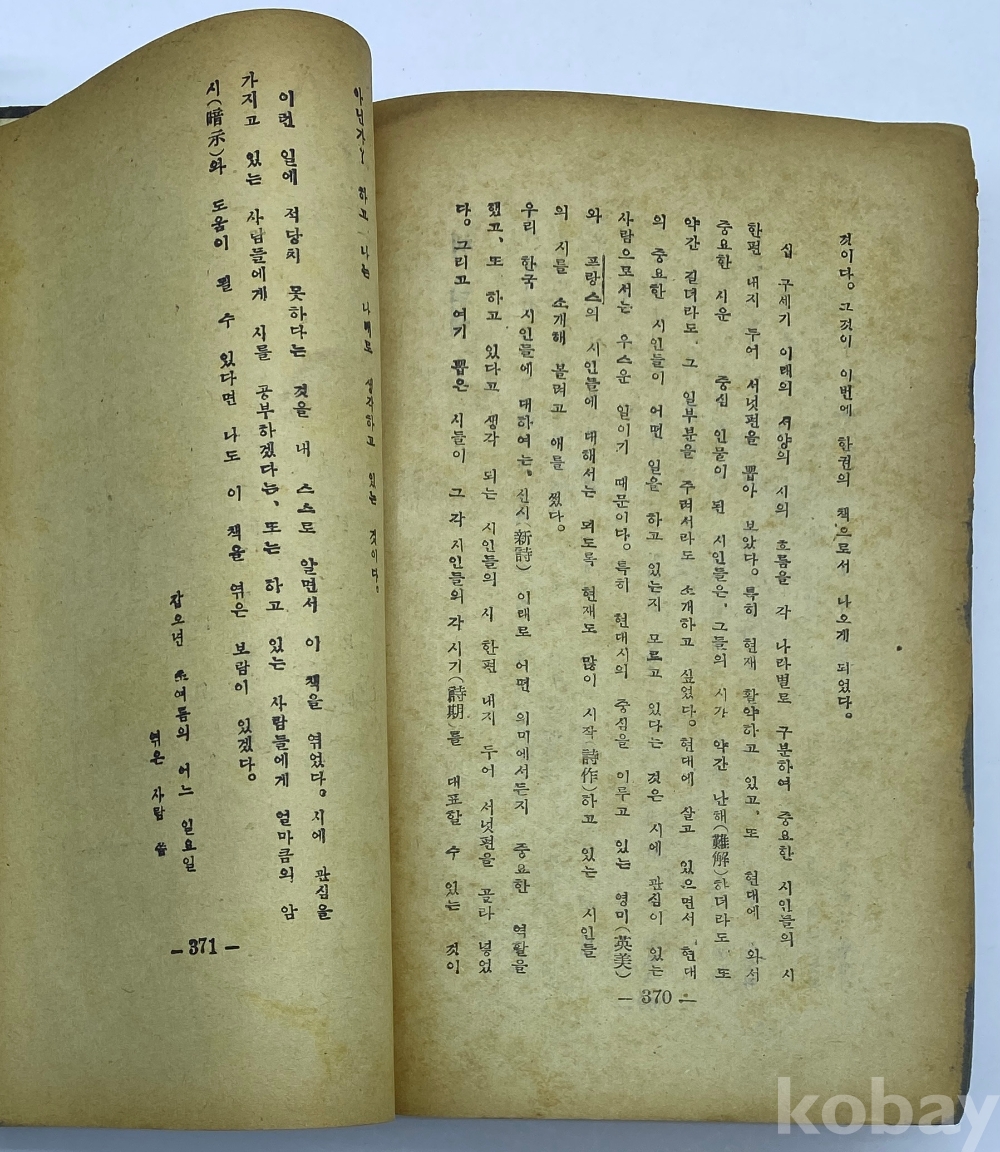 것이다. 그것이 이번에 한권의 책으로서 나오게 되었다.
십 구세기 이래의 서양의 시의 흐름을 각 나라별로 구분하여 중요한 시인들의 시
한편 내지 두어 서넛편을 뽑아 보았다. 특히 현재 활약하고 있고, 또 현대에 와서
중요한 시운 중심 인물이 된 시인들은, 그들의 시가 약간 난해(難解)하더라도 또
약간 길더라도 그 일부분을 추려서라도 소개하고 싶었다. 현대에 살고 있으면서 현대
의 중요한 시인들이 어떤 일을 하고 있는지 모르고 있다는 것은 시에 관심이 있는
사람으로서는 우스운 일이기 때문이다. 특히 현대시의 중심을 이루고 있는 영미(英美)
와 프랑스의 시인들에 대해서는 되도록 현재도 많이 시작(詩作)하고 있는 시인들
의 시를 소개해 볼려고 애를 썼다.
우리 한국 시인들에 대하여는, 신시(新詩) 이래로 어떤 의미에서든지 중요한 역활을
했고, 또 하고 있다고 생각 되는 시인들의 시 한편 내지 두어 서넛편을 골라 넣었
다. 그리고 여기 뽑은 시들이 그 각 시인들의 각 시기(詩期)를 대표할 수 있는 것이
— 370 —
아닌가 하고 나는 나대로 생각하고 있는 것이다.
이런 일에 적당치 못하다는 것을 내 스스로 알면서 이 책을 엮었다. 시에 관심을
가지고 있는 사람들에게 시를 공부하겠다는, 또는 하고 있는 사람들에게 얼마큼의 암
시(暗示)와 도움이 될 수 있다면 나도 이 책을 엮은 보람이 있겠다.
잡으년 초여름의 어느 일요일
엮은 사람 씀
— 371 —
kobay